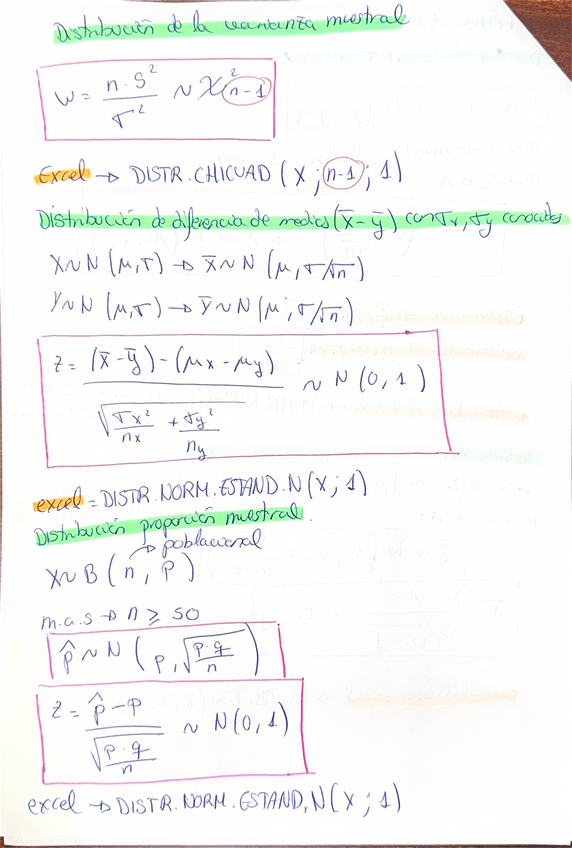 Distribución de la varianza muestral
W = n · S² / σ² ~ χ² n-1
Excel → DISTR.CHICUAD (X ; n-1 ; 1)
Distribución de diferencia de medias (x̄ - ȳ) con σx, σy conocidas
X ~ N (μ, σ) → x̄ ~ N (μ, σ/√n)
Y ~ N (μ, σ) → ȳ ~ N (μ, σ/√n)
z = (x̄ - ȳ) - (μx - μy) / √(σx²/nx + σy²/ny) ~ N (0, 1)
excel = DISTR.NORM.ESTAND.N (X ; 1)
Distribución proporción muestral.
→ poblacional
X ~ B (n, p)
m.a.s → n ≥ 50
p̂ ~ N (p, √(p·q/n))
z = p̂ - p / √(p·q/n) ~ N (0, 1)
excel → DISTR.NORM.ESTAND.N (X ; 1)